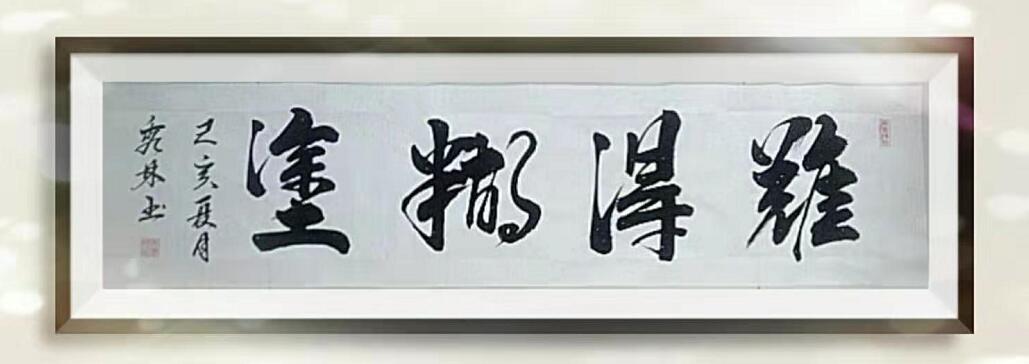 難得糊塗
己亥夏月
秀林书